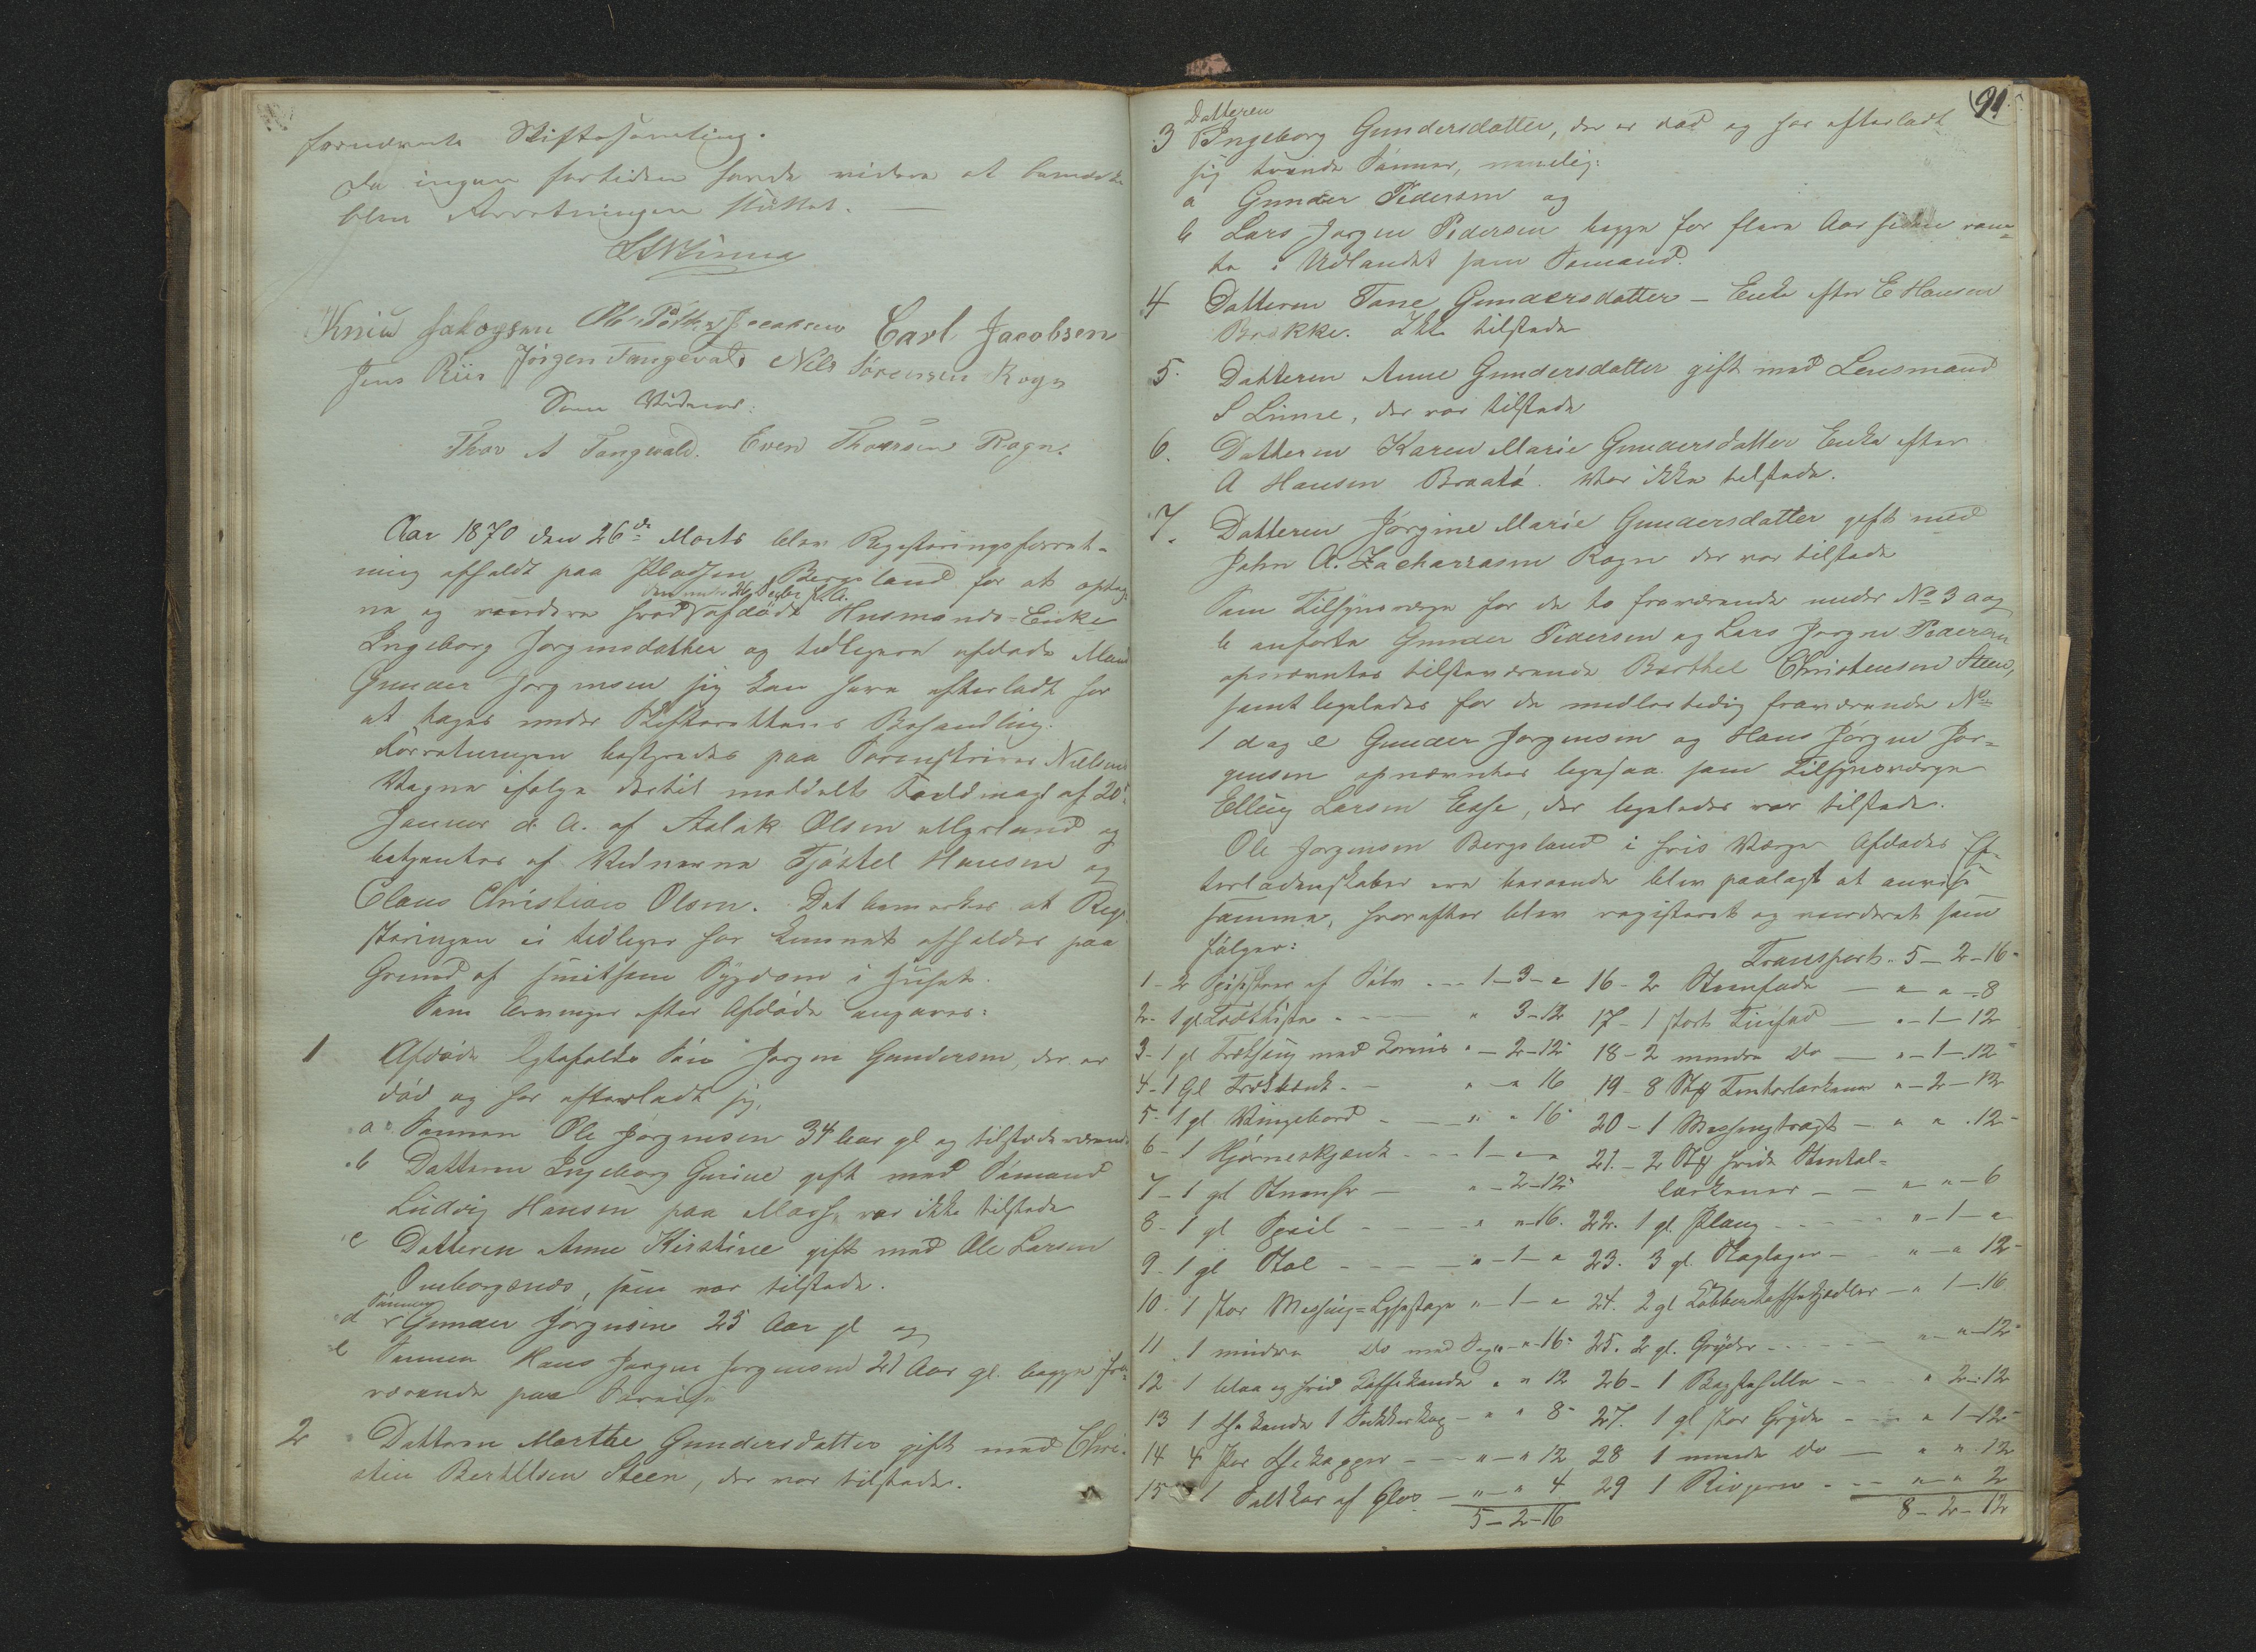 fornævnte Skiftesamling.
Da ingen fortiden havde videre at bemærke
blev Forretningen sluttet. —
Knud Jakobsen Ole Petter Jacobsen Carl Jacobsen
Jens Riis Jörgen Tangevald Nils Sørensen Rogn
Som Vidner:
Thor A Tangvald. Even Thoresen Rogn.
Aar 1870 den 26de Marts blev Registeringsforret-
ning afholdt paa Pladsen Bergsland for at opteg-
ne og vurdere hvad den under 26 Decbr f. A. afdöde Husmands-Enke
Ingeborg Jørgensdatter og tidligere afdøde Mand
Gunder Jørgensen sig kan have efterladt for
at tages under Skifterettens Behandling.
Forretningen bestyredes paa Sorenskriver Nielsens
Vegne ifølge dertil meddelt Fuldmagt af 20
Januar d. A. af Aslak Olsen Myrland og
betjentes af Vidnerne Tjöstel Hansen og
Claus Christian Olsen. Det bemærkes at Regi-
streringen ei tidligere har kunnet afholdes paa
Grund af smitsom Sygdom i Huset.
Som Arvinger efter Afdöde angaves:
1 Afdøde Egtefolks Sön Jørgen Gundersen, der er
död og har efterladt sig,
a Sønnen Ole Jørgensen 34 Aar gl og tilstedeværende
b Datteren Ingeborg Gurine gift med Sömand
Ludvig Hansen paa var ikke tilstede
c Datteren Anne Kirstine gift med Ole Larsen
Omborgsnes, som var tilstede.
d Sönnen Gunder Jörgensen 25 Aar gl og
e Sønnen Hans Jørgen Jørgensen 21 Aar gl. begge fra-
værende paa Søreise
2 Datteren Marthe Gundersdatter gift med Chri-
stin Bertelsen Steen, der var tilstede.
91.
3 Datteren Ingeborg Gundersdatter, der er død og har efterladt
sig tvende Sönner, nemlig:
a Gunder Pedersen og
b Lars Jørgen Pedersen begge for flere Aar siden röm-
te i Udlandet som Sømænd.
4 Datteren Tone Gundersdatter — Enke efter E Hansen
Brække. Ikke tilstede
5. Datteren Anne Gundersdatter gift med Lensmand
S Linne, der var tilstede
6. Datteren Karen Marie Gundersdatter Enke efter
A Hansen Braatö. Var ikke tilstede.
7. Datteren Jørgine Marie Gundersdatter gift med
John A. Zachariasen Rogn der var tilstede
Som Tilsynsværge for de to fraværende under No 3 a og
b anførte Gunder Pedersen og Lars Jørgen Pedersen
opnævntes tilstedeværende Berthel Christensen Steen,
samt ligeledes for de midlertidig fraværende No
1 d og e Gunder Jørgensen og Hans Jørgen Jør-
gensen opnævntes ligesaa som Tilsynsværge
Elling Larsen Esse, der ligeledes var tilstede.
Ole Jørgensen Bergsland i hvis Værge Afdødes Ef-
terladenskaber ere beroende blev paalagt at anvise
samme, hvorefter blev registeret og vurderet som
følger:
1 - 2 Spiseskeer af Sølv - - - 1-3-"
2 - 1 gl Trækiste - - - " 3-12
3 - 1 gl Træseng med Kornis " - 2-12
4 - 1 Gl Træbænk - - " - " 16
5 - 1 gl. Vingebord - - - " - " 16
6 - 1 Hjørneskjænk - - - 1 - " - "
7 - 1 gl Stueuhr — " - 2-12
8 - 1 gl Speil - - - - " " 16.
9 - 1 gl Stol - - - - " - 1 - "
10. 1 stor Messing-Lysestage " - 1 - "
11 1 mindre Do med Sax " - " - 16
12 1 blaa og hvid Kaffekande " " 12
13 1 Thekande 1 Sukkerkop - " " 8
14 4 Par Thekopper - - - " - " 12
15 1 Saltkar af Glas - " - " 4
5 - 2 - 16
Transport. 5 - 2 - 16
16 - 2 Steenfade — " - " - 8
17 - 1 stort Tinfad — " - 1 - 12
18 - 2 mindre Do — " - 1 - 12
19 - 8 Stk Tintallerkener " - 2 - 12
20 - 1 Messingtragt - " " 12
21. - 2 Stk hvide Stental-
lerkener - - " " - 6
22. 1 gl. Plaug - - - - " - 1 - "
23. 3 gl. - - " - " 12
24. 2 gl Kobberkaffekjedler - " 1 - 16
25. 2 gl. Gryder - - - - " - " - 12
26 - 1 Bagstehelle - - " 2 - 12
27. 1 gl stor Gryde - - - " 1 - 12
28 1 mindre Do — " " 12
29 1 Rivjern - - - " - " 2
8 - 2 - 12